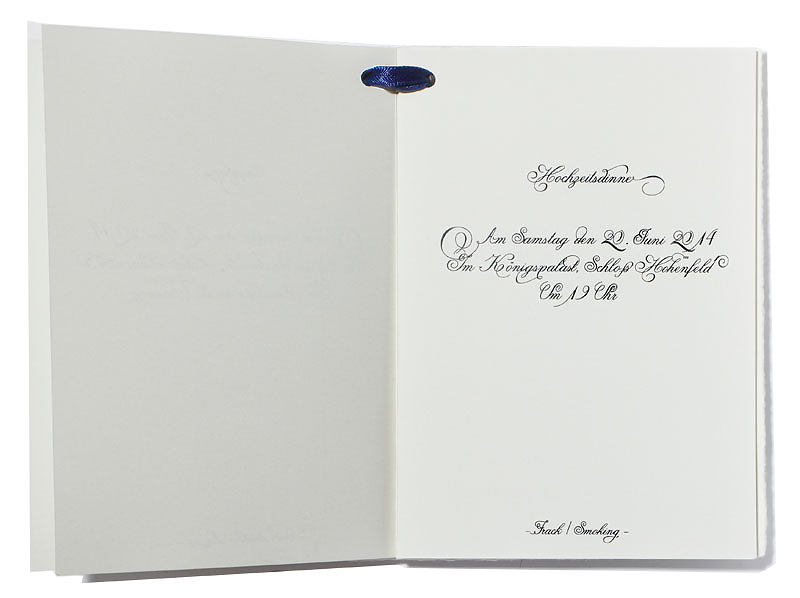 Hochzeitsdinner
Am Samstag den 20. Juni 2014
Im Königspalast, Schloß Hohenfeld
Um 19 Uhr
- Frack / Smoking -